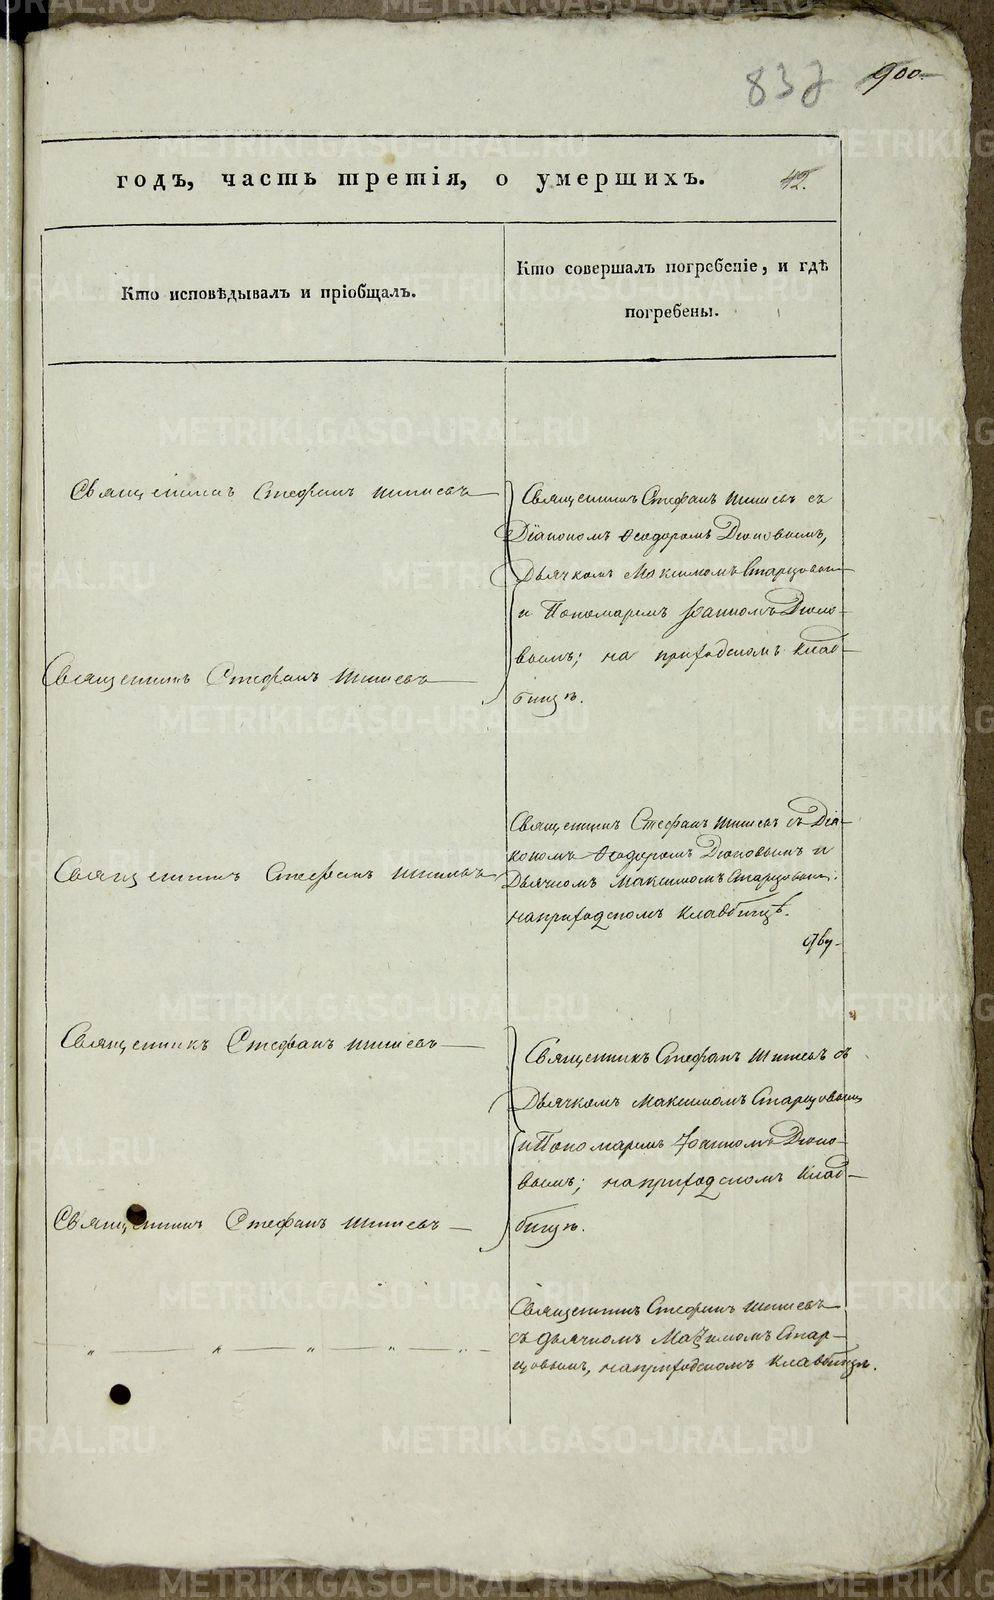 837 900
годъ, часть третія, о умершихъ. 42.
Кто исповѣдывалъ и пріобщалъ.
Кто совершалъ погребеніе, и гдѣ
погребены.
Священникъ Стефанъ
Священникъ Стефанъ съ
Діакономъ Ѳеодоромъ
Дьячкомъ Максимомъ Старцовым
и Пономаремъ Іоанномъ
вымъ; на приходскомъ клад-
бищѣ.
Священникъ Стефанъ
Священникъ Стефанъ съ Діа-
кономъ Ѳеодоромъ и
Дьячкомъ Максимомъ Старцовым:
на приходскомъ кладбищѣ.
Священникъ Стефанъ
Священникъ Стефанъ
Священникъ Стефанъ съ
Дьячкомъ Максимомъ Старцовым
и Пономаремъ Іоанномъ
вымъ; на приходскомъ клад-
бищѣ.
Священникъ Стефанъ
Священникъ Стефанъ
съ дьячкомъ Максимомъ Стар-
цовымъ, на приходскомъ кладбищѣ.
METRIKI.GASO-URAL.RU